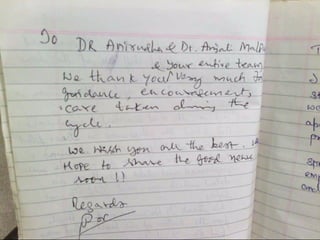 To
DR Aniruddha & Dr. Anjali
& your entire team
We thank you very much for
guidance, encouragements,
care taken during the
cycle.
We wish you all the best.
Hope to share the good news
soon !!
Regards